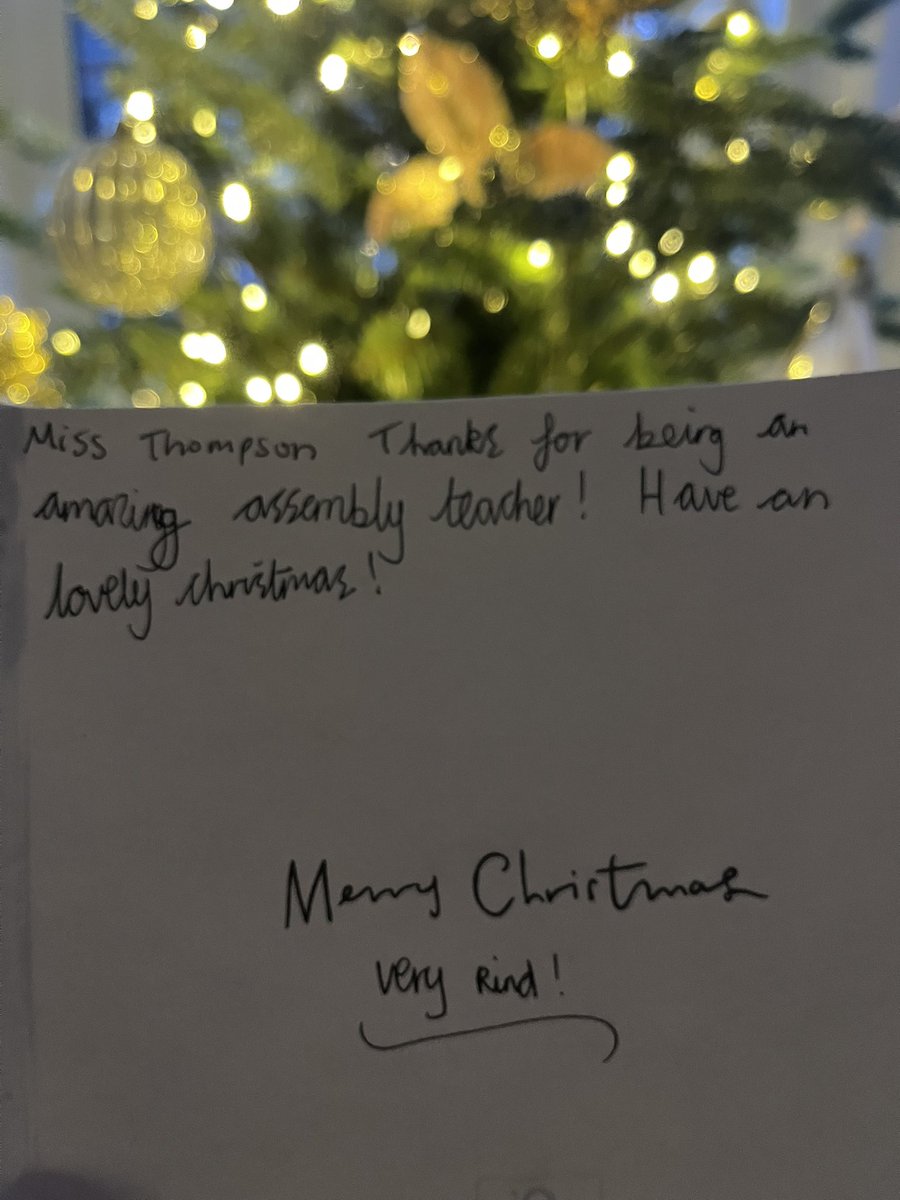 Miss Thompson Thanks for being an
amazing assembly teacher! Have an
lovely christmas!
Merry Christmas
very kind!